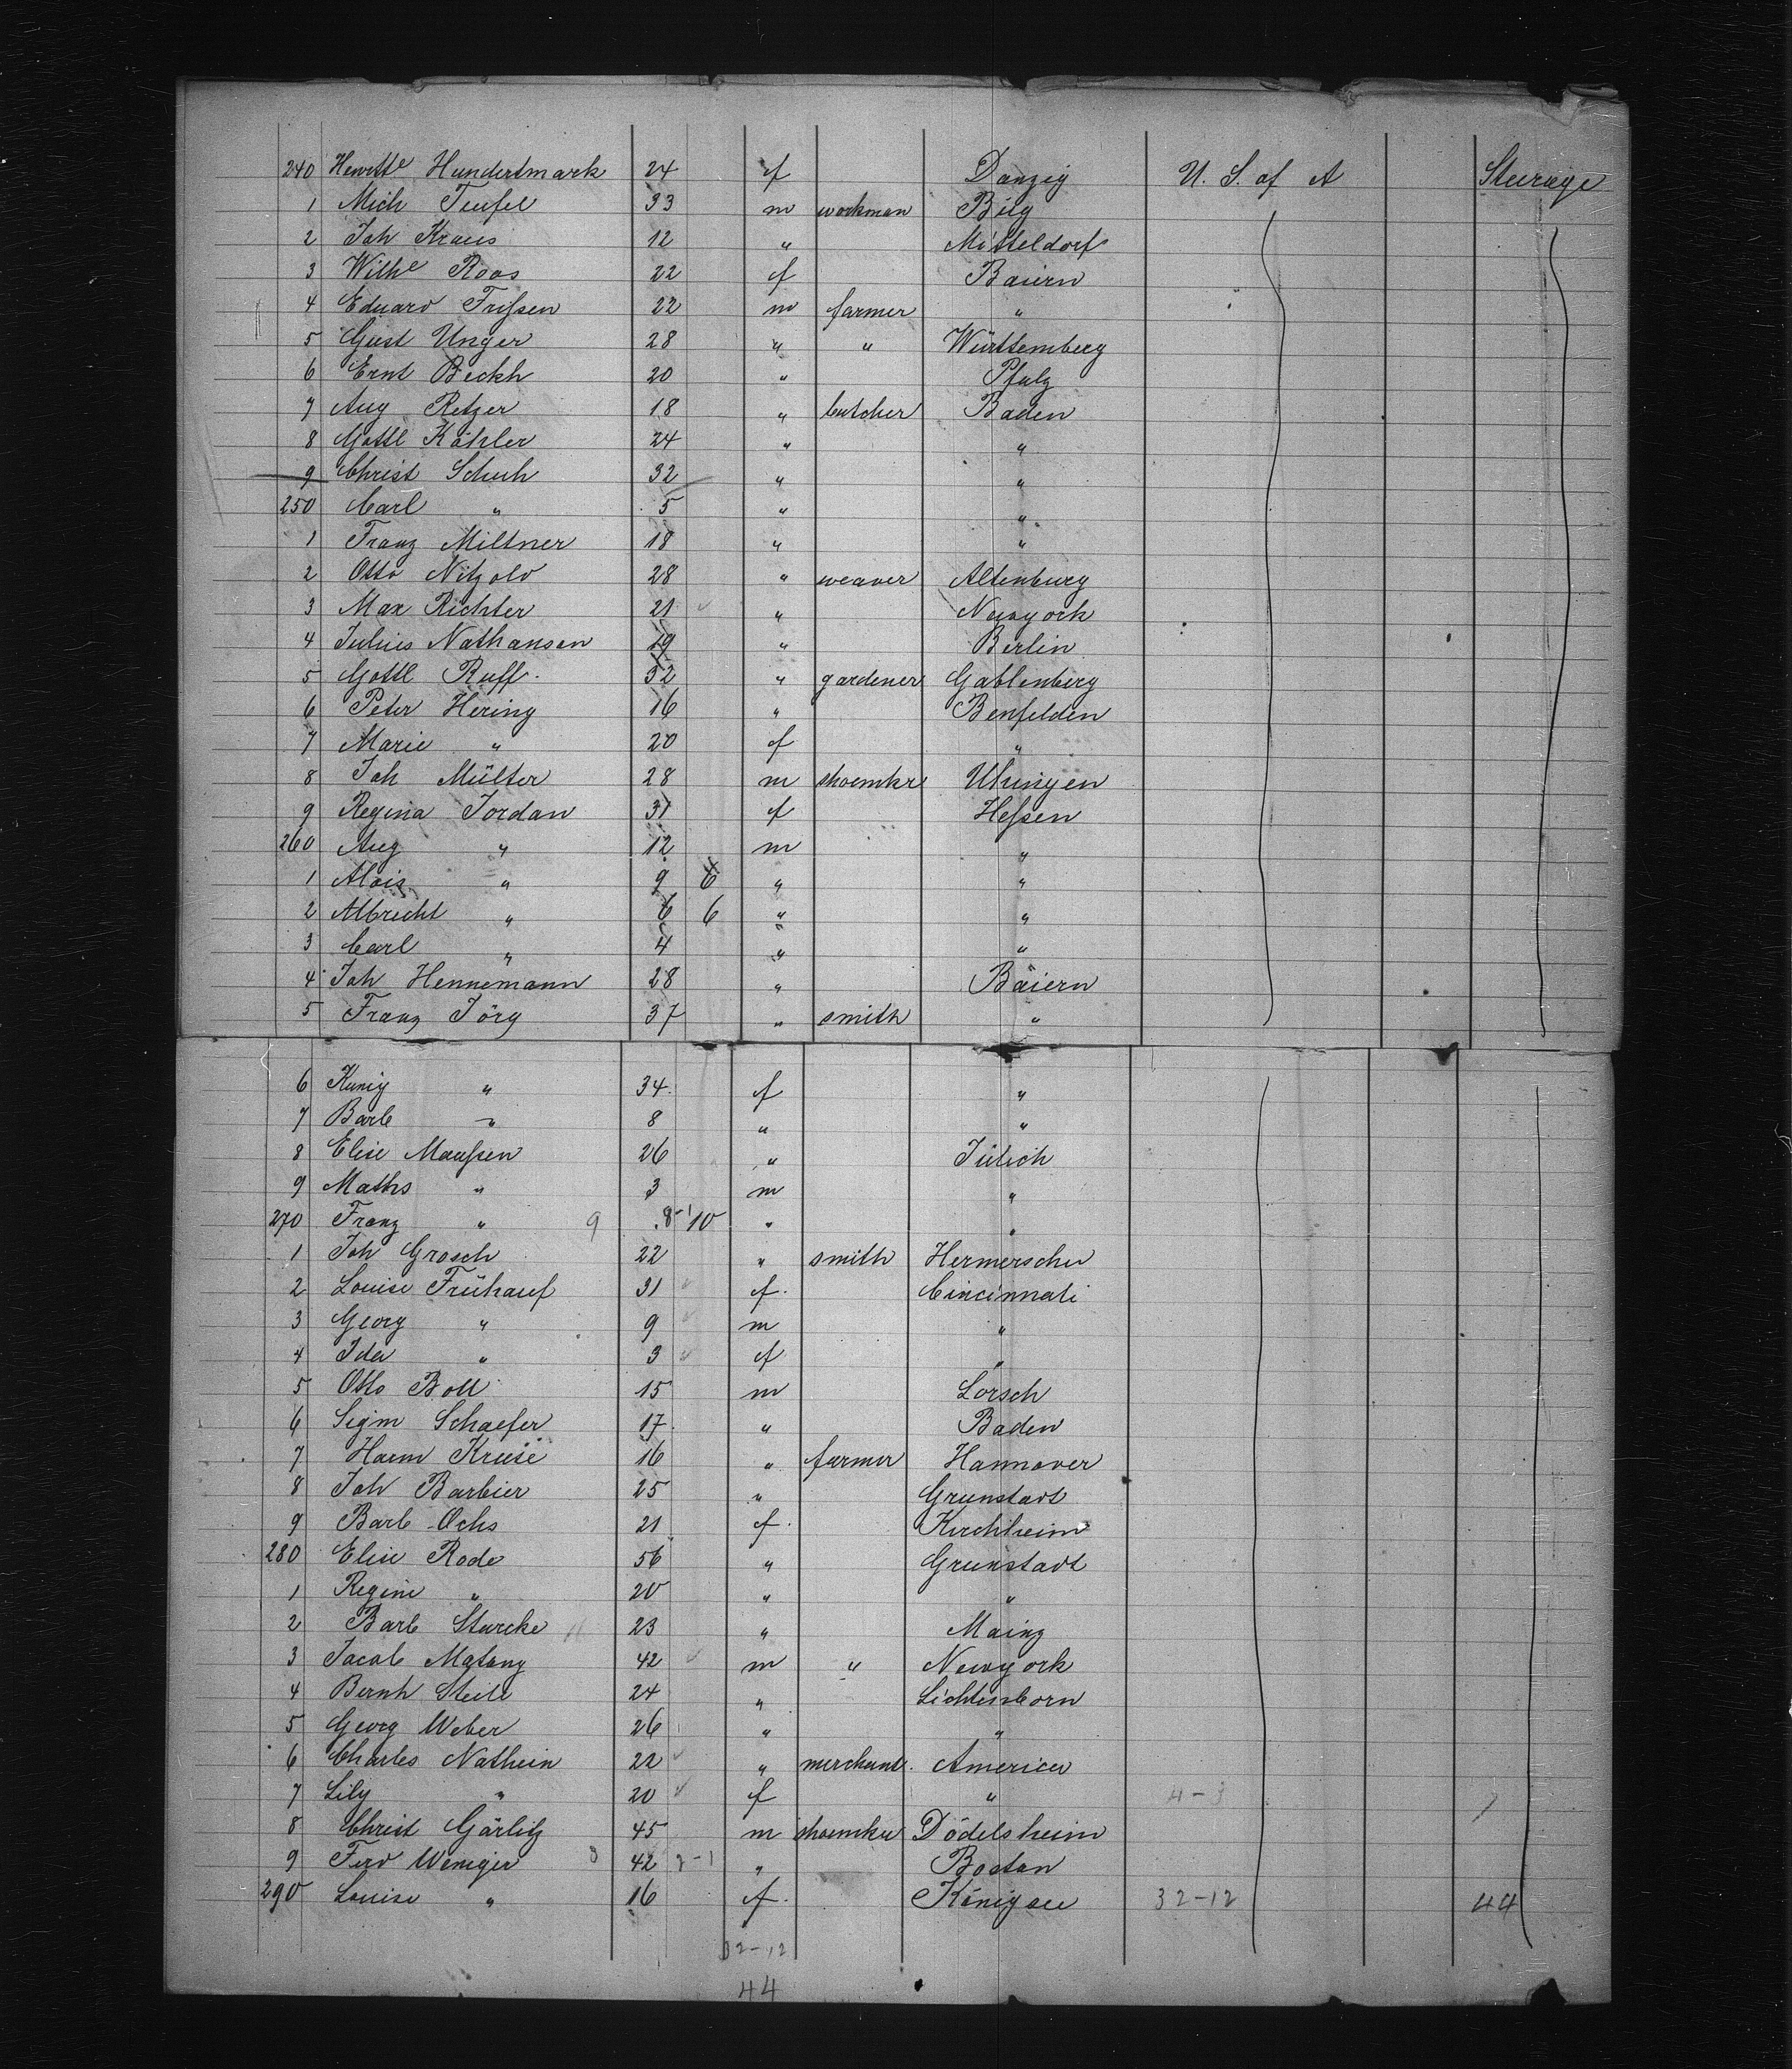 240 Henrtte Hundertmark 24 f Danzig U. S. of A Steerage
1 Mich Teufel 33 m workman Bug
2 Joh Kraus 12 " Mitteldorf
3 Wilhe Roos 22 f Baiern
4 Eduard Frißen 22 m farmer "
5 Gust Unger 28 " " Württemberg
6 Ernt Beckh 20 " Pfalz
7 Aug Retzer 18 " butcher Baden
8 Gottl Köhler 24 " "
9 Christ Schuh 32 " "
250 Carl " 5 " "
1 Franz Miltner 18 " "
2 Otto Nitzold 28 " weaver Altenburg
3 Max Richter 21 " Newyork
4 Julius Nathansen 19 " Berlin
5 Gottl Ruff. 32 " gardener Gablenberg
6 Peter Hering 16 " Benfelden
7 Marie " 20 f "
8 Joh Müller 28 m shoemkr Uhingen
9 Regina Jordan 31 f Heßen
260 Aug " 12 m "
1 Alois " 9 6 " "
2 Albrecht " 6 6 " "
3 Carl " 4 " "
4 Joh Hennemann 28 " Baiern
5 Franz Jörg 37 " smith "
6 Kunig " 34 f "
7 Barb " 8 " "
8 Elise Maußen 26 " Jülich
9 Maths " 3 m "
270 Franz " 9 8-10 " "
1 Joh Grosch 22 " smith
2 Louise Frühauf 31 f. Cincinnati
3 Georg " 9 m "
4 Ida " 3 f "
5 Otto Boll 15 m Lorsch
6 Sigm Schaefer 17 " Baden
7 Harm Kruse 16 " farmer Hannover
8 Joh Barbier 25 " Grunstadt
9 Barb Ochs 21 f. Kirchheim
280 Elise Rode 56 " Grunstadt
1 Regine " 20 " "
2 Barb Starcke 23 " Mainz
3 Jacob Matany 42 m " Newyork
4 Bernh Steile 24 " Lichtenborn
5 Georg Weber 26 " "
6 Charles Nathein 22 " merchant. America
7 Lily " 20 f " 4-3
8 Christ Görlitz 45 m shoemkr Dödelsheim
9 Ferd Weniger 3 42 3-1 " Boston
290 Louise " 16 f. Königsee 32-12 44
32-12
44